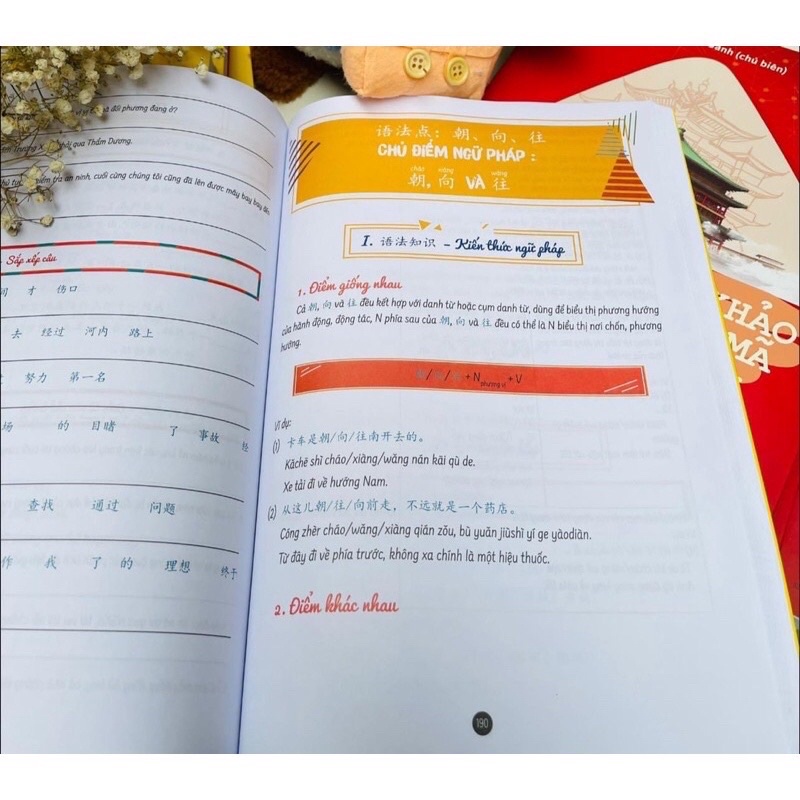 đối phương đang ở?
qua Thẩm Dương.
an ninh, cuối cùng chúng tôi cũng đã lên được máy bay bay đến
Sắp xếp câu
才 伤口
去 经过 河内 路上
努力 第一名
场 的 目睹 了 事故 经
查找 通过 问题
作 我 了 的 理想 终于
语法点：朝、向、往
CHỦ ĐIỂM NGỮ PHÁP :
cháo xiàng wǎng
朝, 向 VÀ 往
I. 语法知识 – Kiến thức ngữ pháp
1. Điểm giống nhau
Cả 朝, 向 và 往 đều kết hợp với danh từ hoặc cụm danh từ, dùng để biểu thị phương hướng
của hành động, động tác, N phía sau của 朝, 向 và 往 đều có thể là N biểu thị nơi chốn, phương
hướng.
+ N phương vị + V
Ví dụ:
(1) 卡车是朝/向/往南开去的。
Kǎchē shì cháo/xiàng/wǎng nán kāi qù de.
Xe tải đi về hướng Nam.
(2) 从这儿朝/往/向前走，不远就是一个药店。
Cóng zhèr cháo/wǎng/xiàng qián zǒu, bù yuǎn jiùshì yí ge yàodiàn.
Từ đây đi về phía trước, không xa chính là một hiệu thuốc.
2. Điểm khác nhau
190
(chủ biên)
KHẢO
MÃ